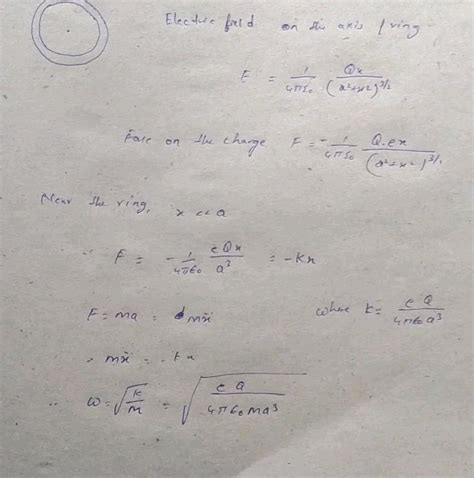 Electric field on the axis of ring
E = \frac{1}{4πε₀} \frac{Qx}{(a²+x²)^{3/2}}
Force on the charge F = -\frac{1}{4πε₀} \frac{Q.ex}{(a²+x²)^{3/2}}
Near the ring, x << a
∴ F = -\frac{1}{4πε₀} \frac{eQx}{a³} = -Kx
F = ma = mẍ where K = \frac{eQ}{4πε₀a³}
∴ mẍ = -kx
∴ ω = \sqrt{\frac{k}{m}} = \sqrt{\frac{eQ}{4πε₀ma³}}